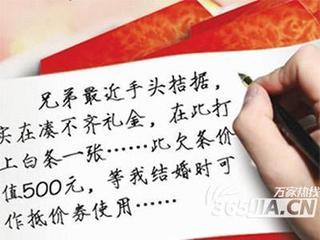 兄弟最近手头桔据,
实在凑不齐礼金,在此打
上白条一张……此欠条价
值500元,等我结婚时可
作抵价券使用……
万家热线
365JIA.CN